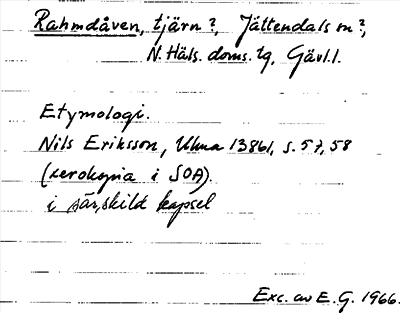 Rahmdåven, tjärn?, Jättendals sn?,
N. Häls. doms. tg, Gävl. l.
Etymologi.
Nils Eriksson, Ulma 13861, s. 57, 58
(xerokopia i SOA).
i särskild kapsel
Exc. av E. G. 1966.